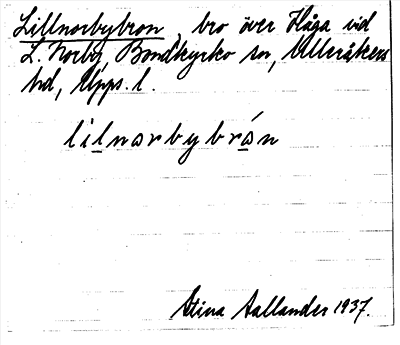 Lillnorbybron, bro över Håga vid
L. Norby, Bondkyrko sn, Ulleråkers
hd, Upps. l.
lilnorbybrón
Stina Aallander 1937.